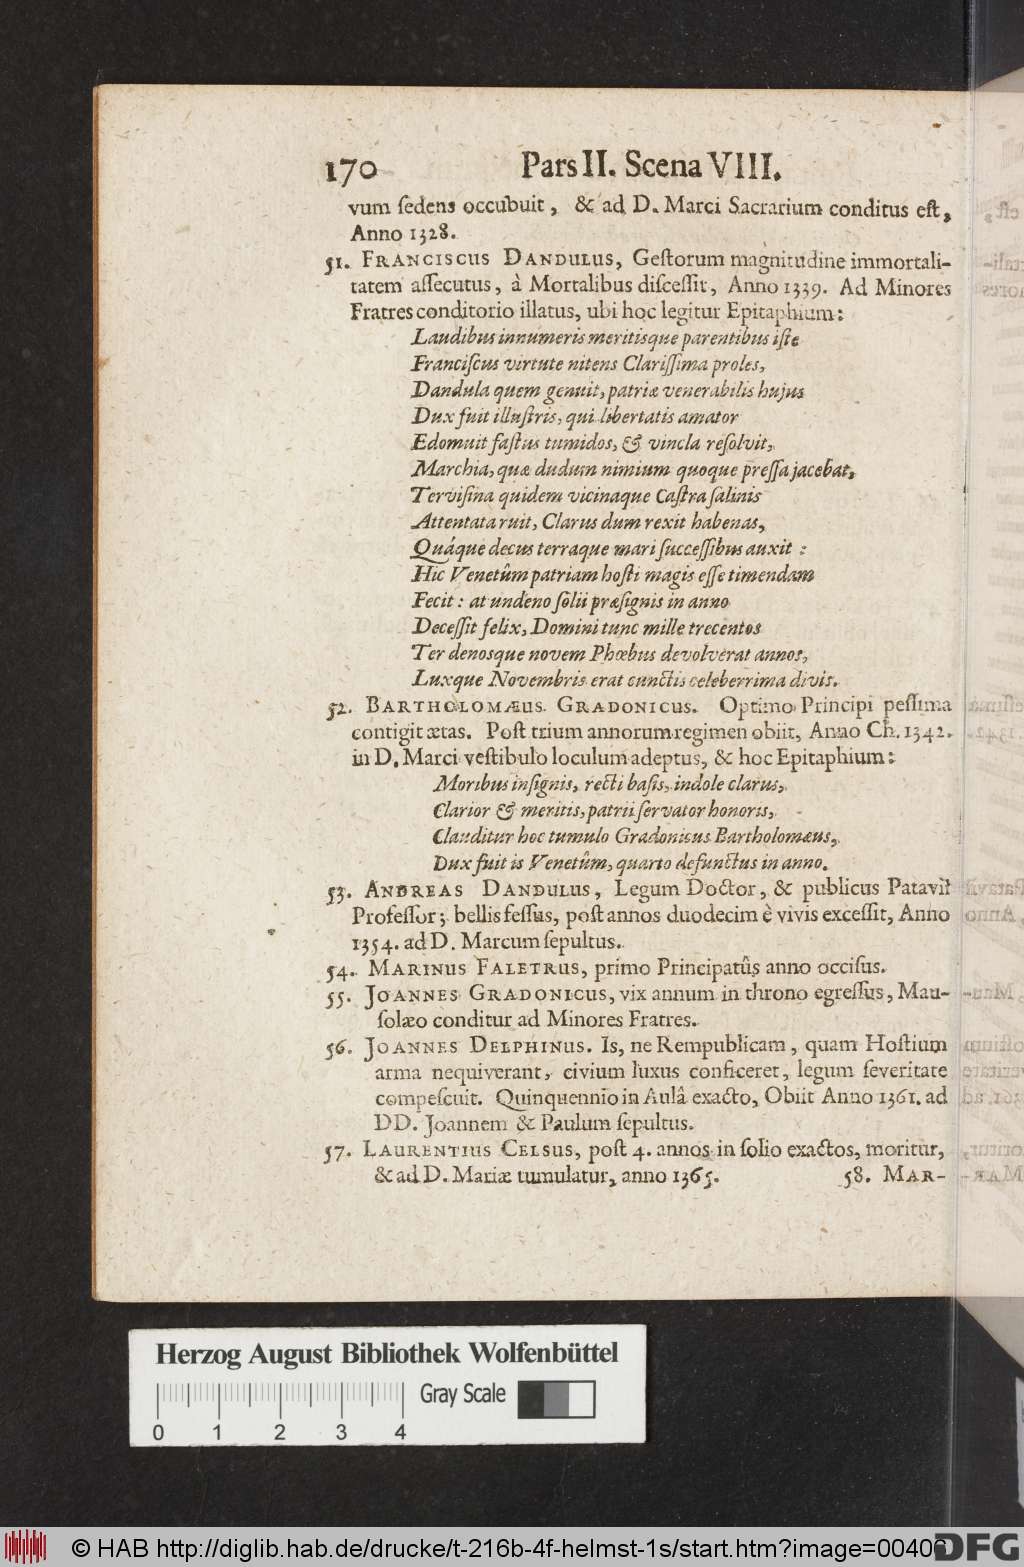 170 Pars II. Scena VIII.
vum ſedens occubuit, & ad D. Marci Sacrarium conditus eſt,
Anno 1328.
51. FRANCISCUS DANDULUS, Geſtorum magnitudine immortali-
tatem aſſecutus, à Mortalibus diſceſſit, Anno 1339. Ad Minores
Fratres conditorio illatus, ubi hoc legitur Epitaphium:
Laudibus innumeris meritisque parentibus iſte
Franciſcus virtute nitens Clariſſima proles,
Dandula quem genuit, patriæ venerabilis hujus
Dux fuit illuſtris, qui libertatis amator
Edomuit faſtus tumidos, & vincla reſolvit,
Marchia, quæ dudum nimium quoque preſſa jacebat,
Terviſina quidem vicinaque Caſtra ſalinis
Attentata ruit, Clarus dum rexit habenas,
Quáque decus terraque mari ſucceſſibus auxit:
Hic Venetûm patriam hoſti magis eſſe timendam
Fecit: at undeno ſolii præſignis in anno
Deceſſit felix, Domini tunc mille trecentos
Ter denosque novem Phœbus devolverat annos,
Luxque Novembris erat cunctis celeberrima divis.
52. BARTHOLOMÆUS GRADONICUS. Optimo Principi peſſima
contigit ætas. Poſt trium annorum regimen obiit, Anno Ch. 1342.
in D. Marci veſtibulo loculum adeptus, & hoc Epitaphium:
Moribus inſignis, recti baſis, indole clarus,
Clarior & meritis, patrii ſervator honoris,
Clauditur hoc tumulo Gradonicus Bartholomæus,
Dux fuit is Venetûm, quarto defunctus in anno.
53. ANDREAS DANDULUS, Legum Doctor, & publicus Patavii
Profeſſor; bellis feſſus, poſt annos duodecim è vivis exceſſit, Anno
1354. ad D. Marcum ſepultus.
54. MARINUS FALETRUS, primo Principatûs anno occiſus.
55. JOANNES GRADONICUS, vix annum in throno egreſſus, Mau-
ſolæo conditur ad Minores Fratres.
56. JOANNES DELPHINUS. Is, ne Rempublicam, quam Hoſtium
arma nequiverant, civium luxus conficeret, legum ſeveritate
compeſcuit. Quinquennio in Aulâ exacto, Obiit Anno 1361. ad
DD. Joannem & Paulum ſepultus.
57. LAURENTIUS CELSUS, poſt 4. annos in ſolio exactos, moritur,
& ad D. Mariæ tumulatur, anno 1365. 58. MAR-
Herzog August Bibliothek Wolfenbüttel
Gray Scale
0 1 2 3 4
© HAB http://diglib.hab.de/drucke/t-216b-4f-helmst-1s/start.htm?image=00406
DFG